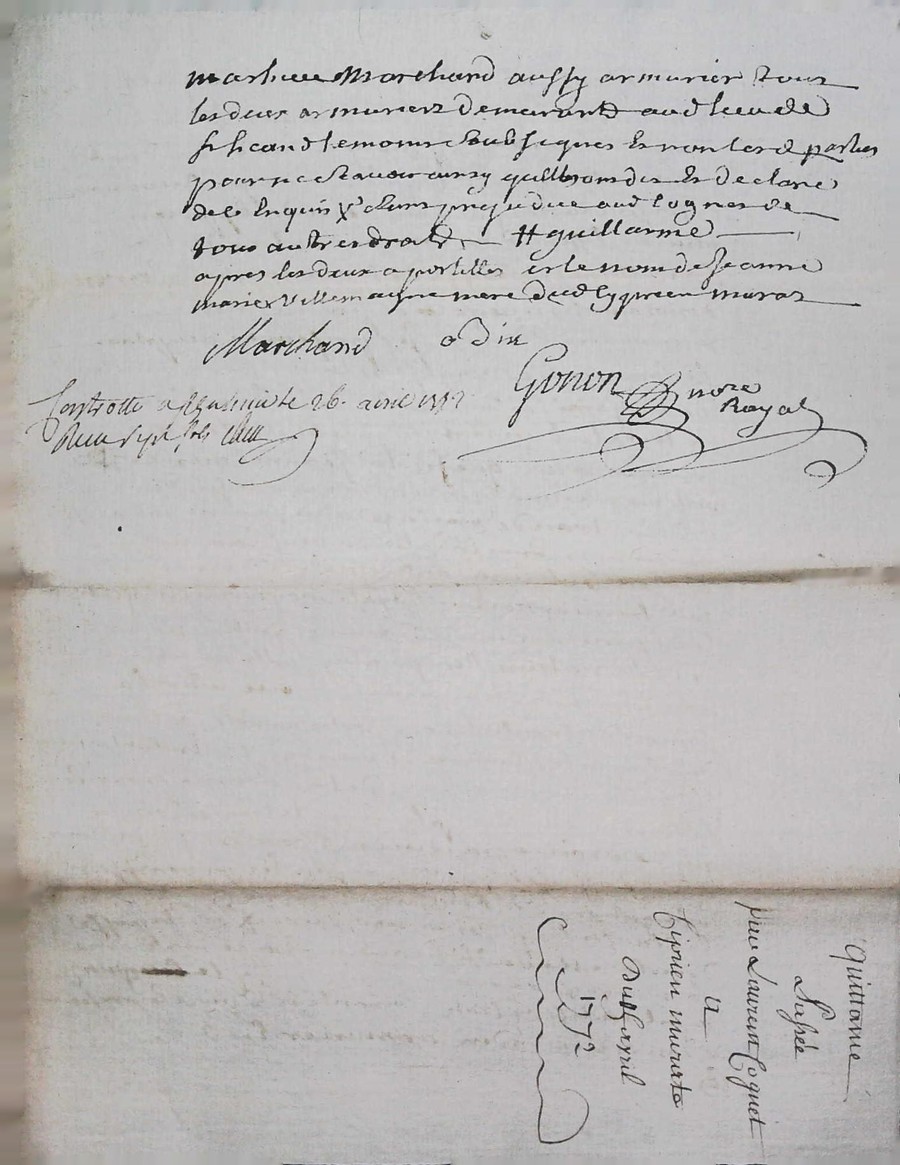 mathieu Marchand aussy armurier tous
les deux armuriers demeurant aud lieu de
le moins Soubsignes Et non lesd parties
pour ne Scavoir quils ont dit Et declaré
de ce Enquis prejudice aud Cognet de
tous autres droits # guillaume
apres les deux apostilles et le nom de Jeanne
marie Villemagne mere dud Cyprien murat
Marchand
Gonon nore
Royal
Controllé a le 26 avril 1772
Receu Sept sols
quittance
Passée
pour Laurent Cognet
a
Ciprien murat
Du avril
1772